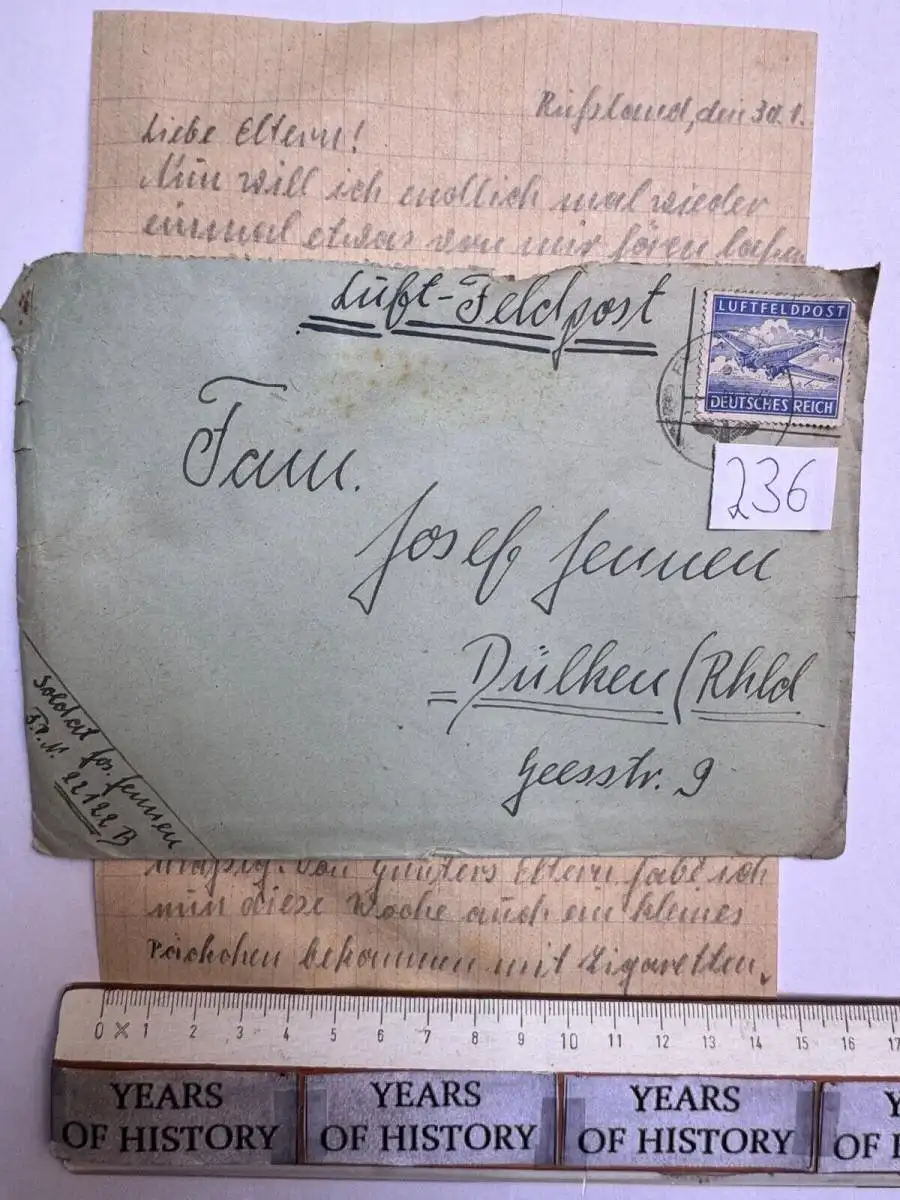 Rußland, den 30.1.
Liebe Eltern!
Nun will ich endlich mal wieder
einmal etwas von mir hören laßen
Luft-Feldpost
LUFTFELDPOST
DEUTSCHES REICH
236
Fam.
Josef Jennen
Dülken (Rhld
Geesstr. 9
Soldat Jos. Jennen
F.P.N. 22122 B
mäßig. Von Günters Eltern habe ich
nun diese Woche auch ein kleines
Päckchen bekommen mit Zigaretten.
0 1 2 3 4 5 6 7 8 9 10 11 12 13 14 15 16 17
YEARS OF HISTORY
YEARS OF HISTORY
YEARS OF HISTORY